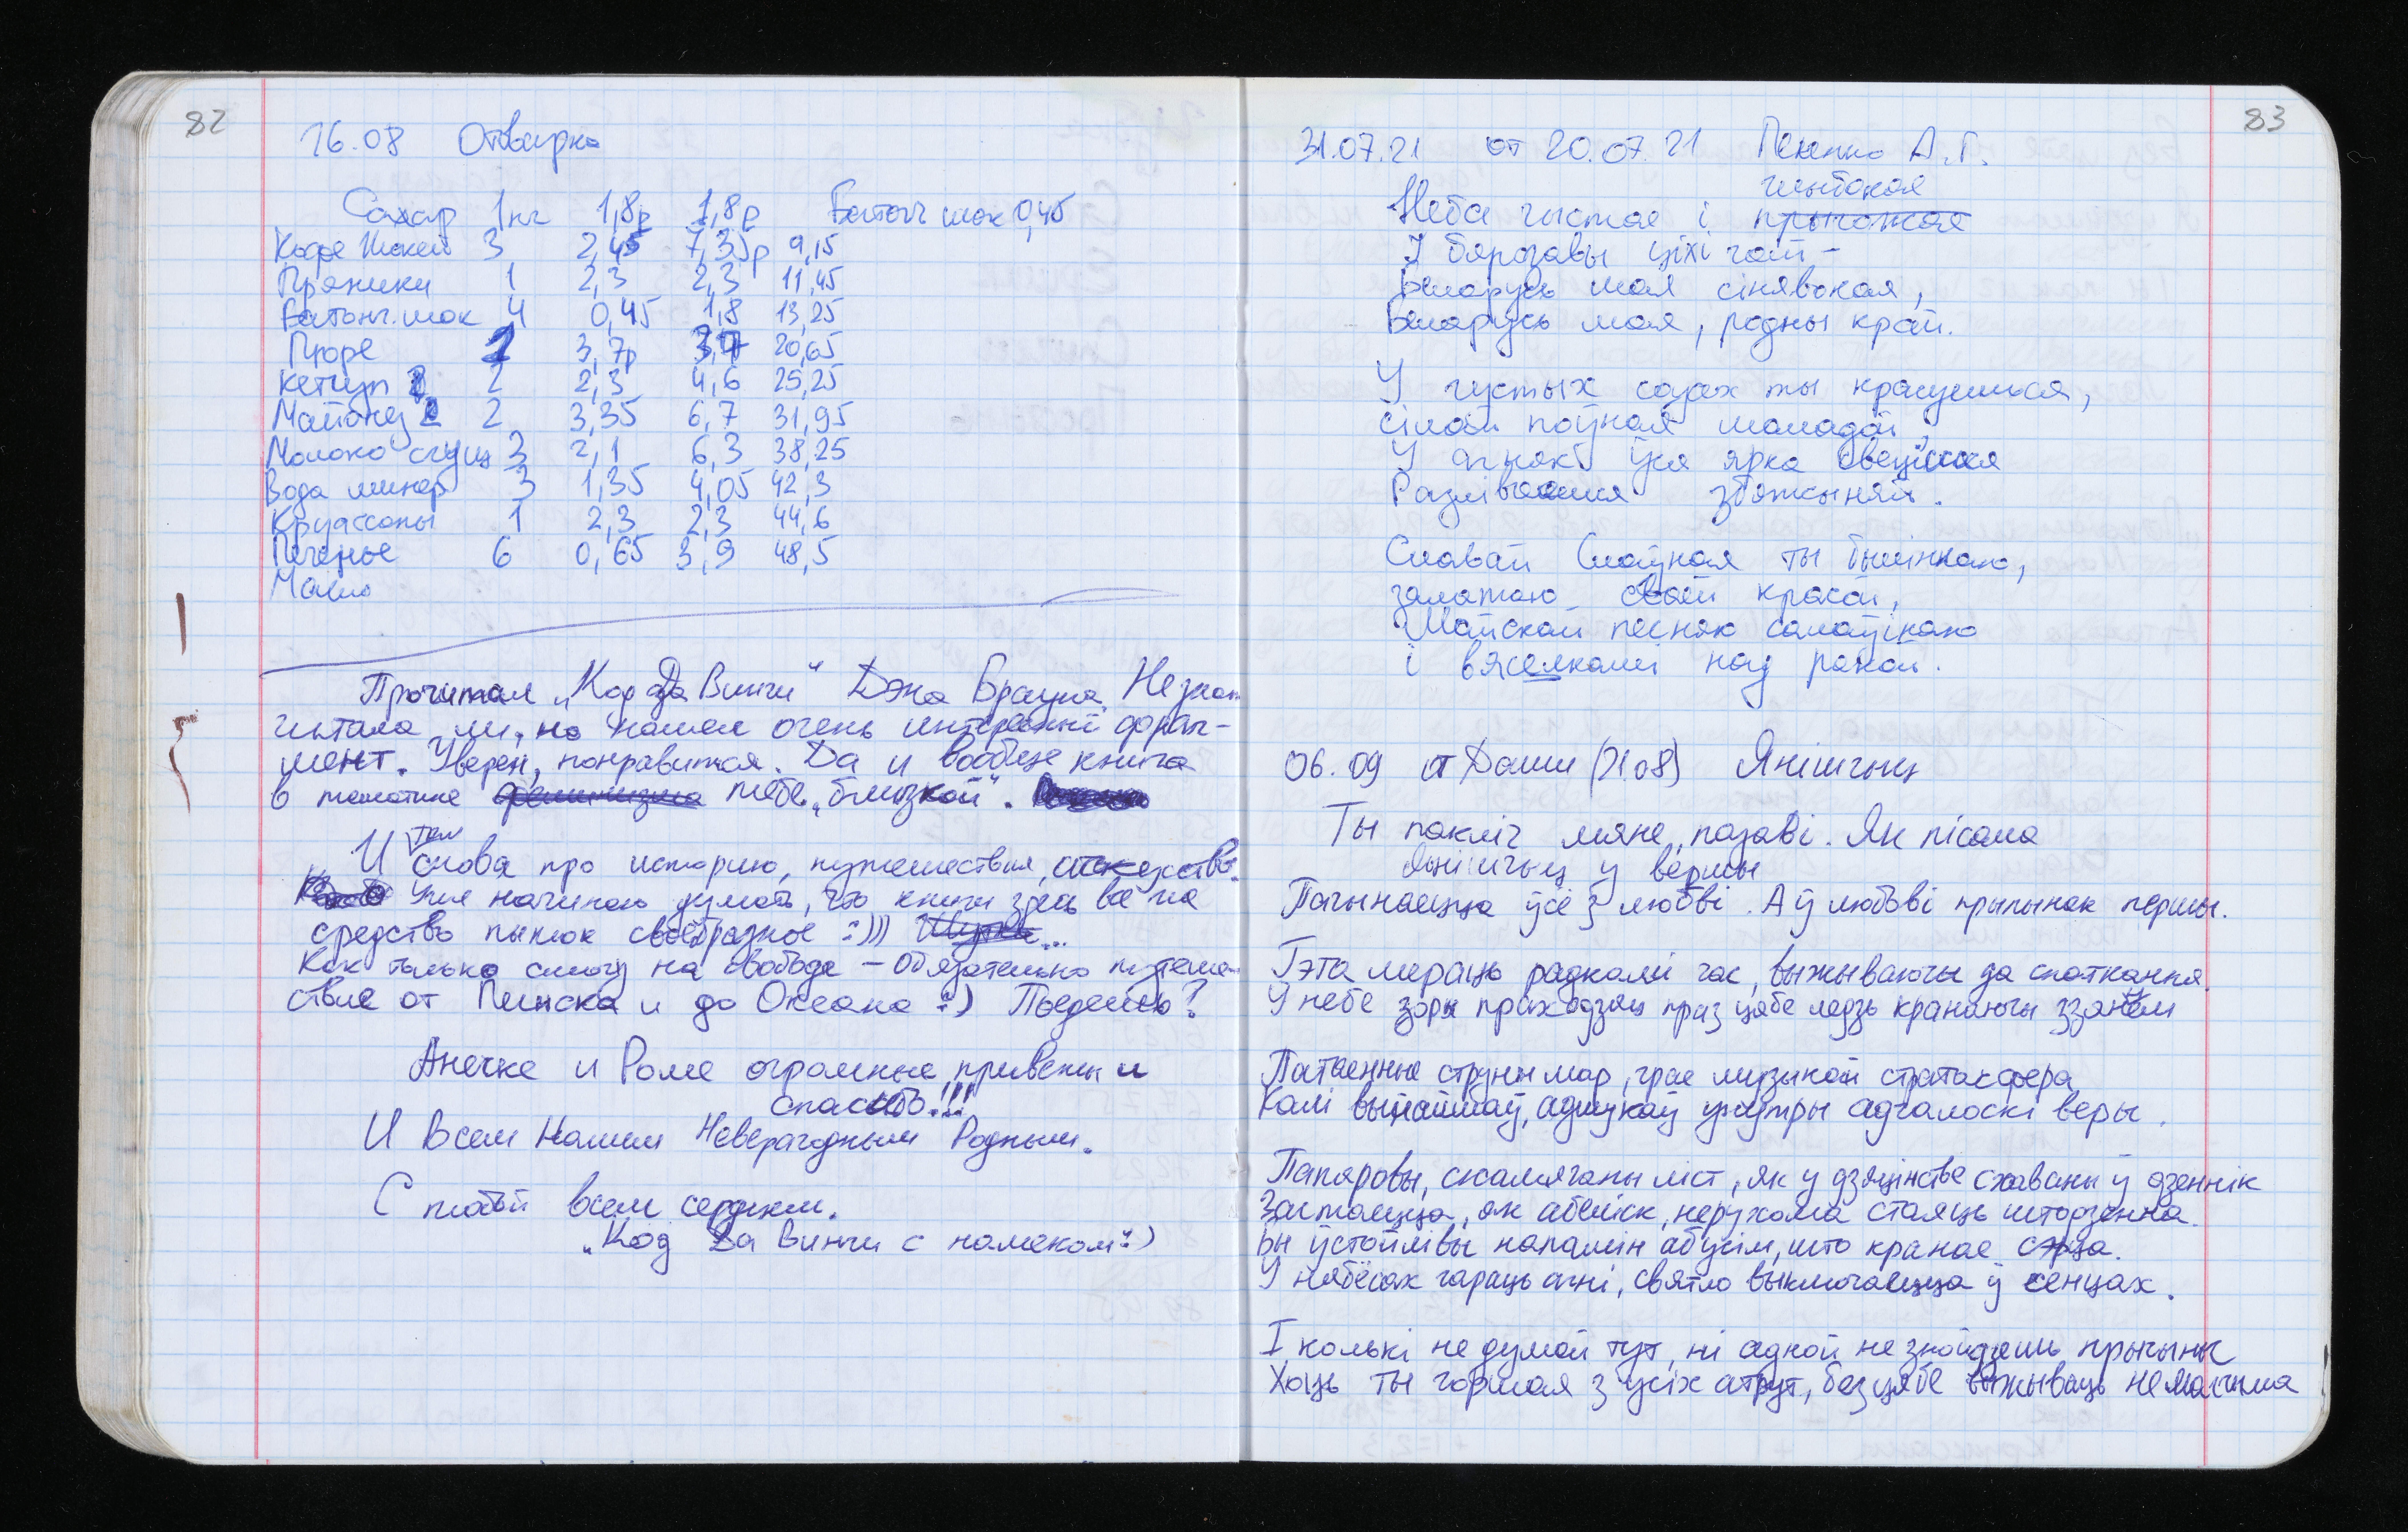 82
16.08 Отварка
Сахар 1кг 1,8р 1,8р Батонч шок 0,45
Кофе Жокей 3 2,45 7,35р 9,15
Пряники 1 2,3 2,3 11,45
Батонч. шок 4 0,45 1,8 13,25
Пюре 2 3,7р 20,65
Кетчуп 2 2,3 4,6 25,25
Майонез 2 3,35 6,7 31,95
Молоко сгущ 3 2,1 6,3 38,25
Вода минер 3 1,35 4,05 42,3
Круассоны 1 2,3 2,3 44,6
Печенье 6 0,65 3,9 48,5
Мыло
Прочитал „Код да Винчи“ Дэна Брауна. Не знаю
читала ли, но нашел очень интересный фраг-
мент. Уверен, понравится. Да и вообще книга
в тематике феминизма тебе „близкой“.
И там снова про историю, путешествия, искусство.
Уже начинаю думать, что книги здесь все на
средство пыток своеобразное :))) Шутка...
Как только смогу на свободе – обязательно путеше-
ствие от Пинска и до Океана :) Поедешь?
Анечке и Роме огромные приветы и
спасибо!!!
И Всем Нашим Неверагодным Родным.
С тобой всем сердцем.
„Код Да Винчи с намеком“ :)
83
31.07.21 от 20.07.21 А.Г.
глыбокая
Неба чыстае і прыгожае
І бярозавы ціхі гай –
Беларусь мая сінявокая,
Беларусь мая, родны край.
У густых садах ты красуешься,
сілай поўная маладой,
У агнях ўся ярка свецішся
Разліваешся збажыной.
Славай Слаўная ты былінкаю,
залатою сваёй красой,
Майскай песняю салаўінаю
і вясёлкамі над ракой.
06.09 от Даши (21.08) Янішчыц
Ты пакліч мяне, пазаві. Як пісала
Янішчыц у вершы
Пачынаецца ўсё з любві. А ў любові прыпынак першы.
Гэта мераць радкамі час, выжываючы да спаткання.
У небе зоры праходзяць праз цябе ледзь кранаючы ззяннем
Патаенные струны мар, грае музыкай стратасфера,
Калі выпаймаў, адшукаў унутры адгалоскі веры.
Папяровы, скамячаны ліст, як у дзяцінстве схаваны ў дзеннік
Застаецца, як абеліск, нерухома стаяць штодзённа.
Бы ўстойлівы напамін аб усім, што кранае сэрца.
У нябёсах гараць агні, святло выключаецца ў сенцах.
І колькі не думай тут, ні адной не знойдзешь прычыны
Хоць ты горшая з усіх атрут, без цябе выжываць немагчыма